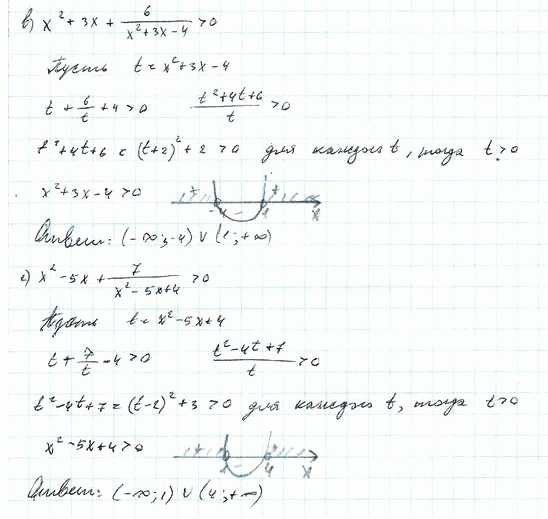 в) x² + 3x + 6/(x² + 3x - 4) > 0
Пусть t = x² + 3x - 4
t + 6/t + 4 > 0   (t² + 4t + 6)/t > 0
t² + 4t + 6 = (t+2)² + 2 > 0 для каждого t, тогда t > 0
x² + 3x - 4 > 0   + - + -4 1 x
Ответ: (-∞; -4) ∪ (1; +∞)
г) x² - 5x + 7/(x² - 5x + 4) > 0
Пусть t = x² - 5x + 4
t + 7/t - 4 > 0   (t² - 4t + 7)/t > 0
t² - 4t + 7 = (t-2)² + 3 > 0 для каждого t, тогда t > 0
x² - 5x + 4 > 0   + - + 1 4 x
Ответ: (-∞; 1) ∪ (4; +∞)